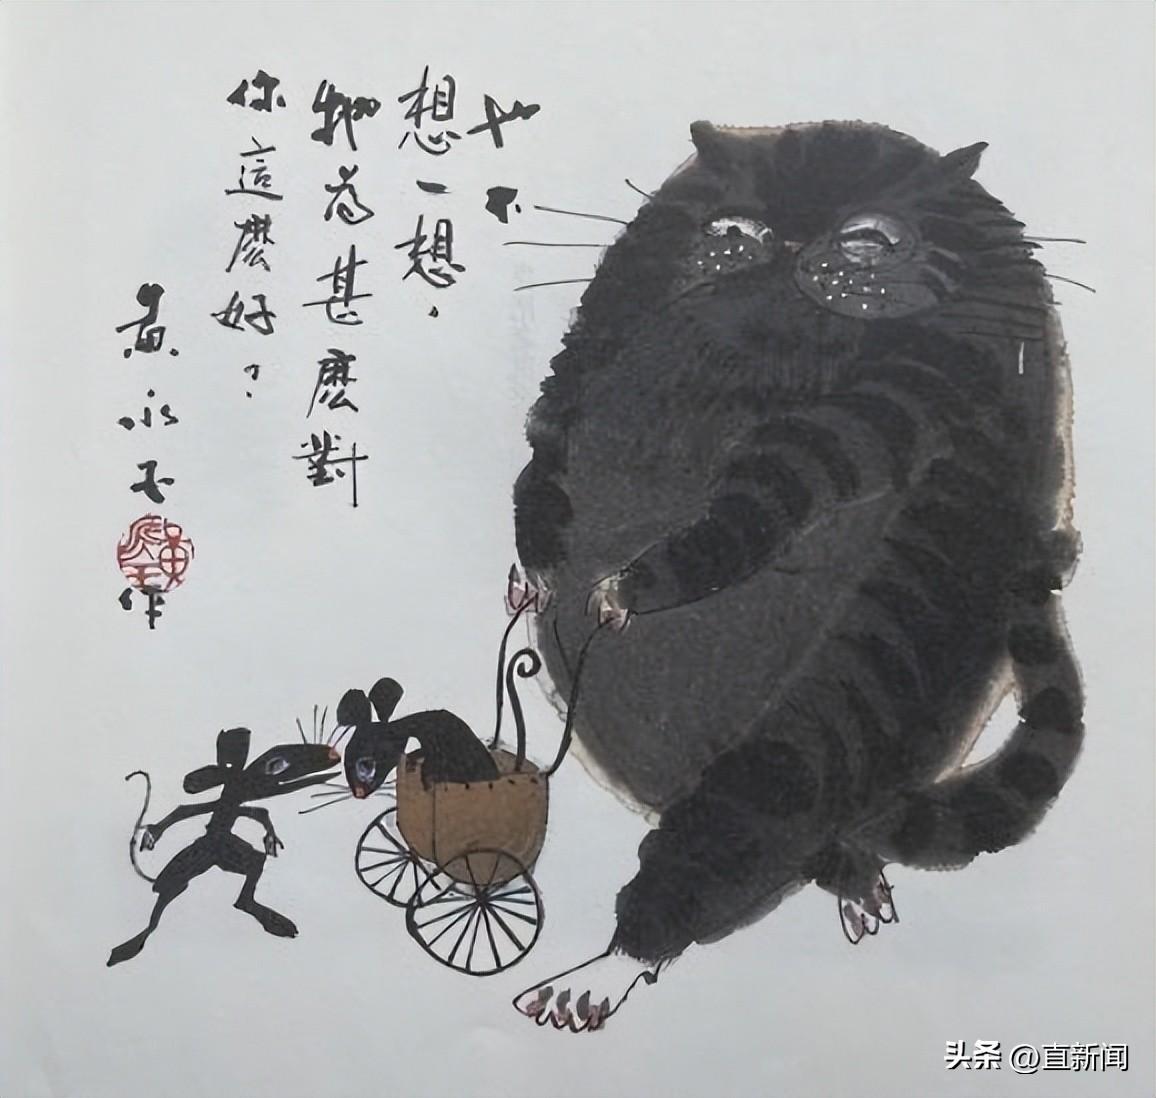 也不
想一想，
牠為甚麽對
你這麽好？
黄永玉
作
头条 @直新闻